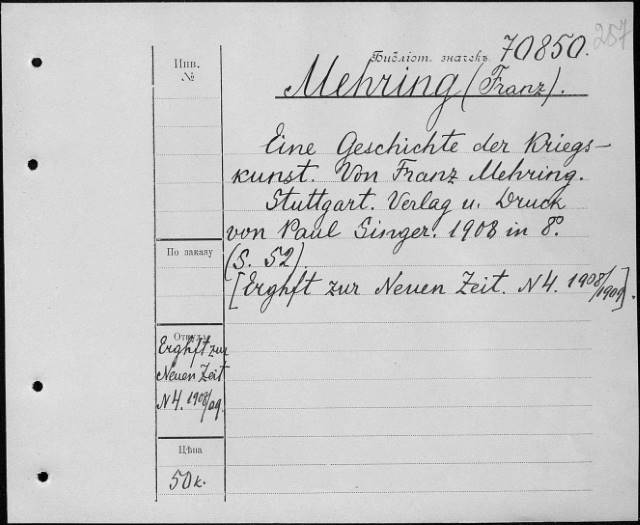 257
Библіот. значекъ 70850.
Инв.
№
Mehring (Franz).
Eine Geschichte der Kriegs-
kunst. Von Franz Mehring.
Stuttgart. Verlag u. Druck
von Paul Singer. 1908 in 8º.
(S. 52)
[Erghft zur Neuen Zeit. N 4. 1908/1909].
По заказу
Откуда
Erghft zur
Neuen Zeit
N 4. 1908/09.
Цѣна
50 к.